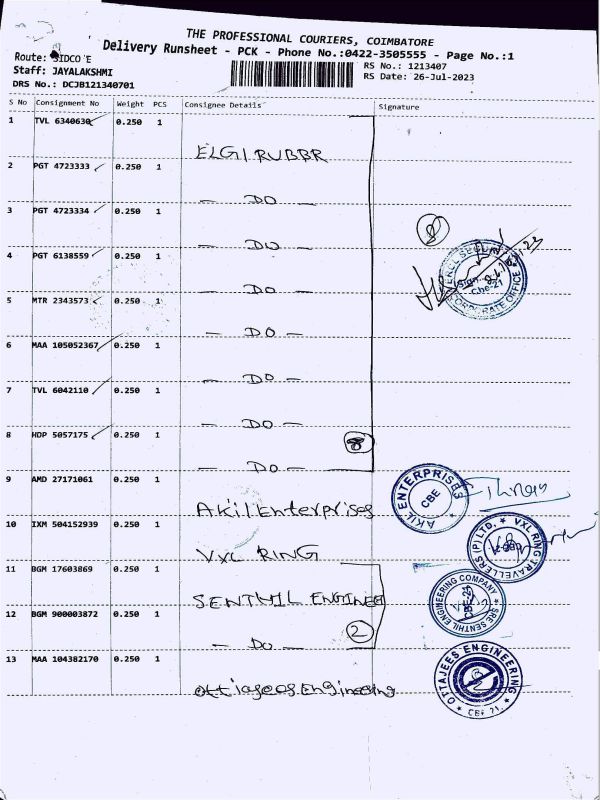 THE PROFESSIONAL COURIERS, COIMBATORE
Delivery Runsheet - PCK - Phone No.:0422-3505555 - Page No.:1
Route: SIDCO 'E
Staff: JAYALAKSHMI
DRS No.: DCJB121340701
RS No.: 1213407
RS Date: 26-Jul-2023
S No Consignment No Weight PCS Consignee Details Signature
1 TVL 6340630 0.250 1
ELGI RUBBR
2 PGT 4723333 0.250 1
- DO -
3 PGT 4723334 0.250 1
- DO -
4 PGT 6138559 0.250 1
- DO -
5 MTR 2343573 0.250 1
- DO -
6 MAA 105052367 0.250 1
- DO -
7 TVL 6042110 0.250 1
- DO -
8 HDP 5057175 0.250 1
- DO -
8
8
CORPORATE OFFICE
Cbe-21
9 AMD 27171061 0.250 1
Akil Enterprises
AKIL ENTERPRISES
CBE
10 IXM 504152939 0.250 1
VXL RING
VXL RING TRAVELLERS (P) LTD.
11 BGM 17603869 0.250 1
SENTHIL ENGINEER
SRE SENTHIL ENGINEERING COMPANY
CBE-25
12 BGM 900003872 0.250 1
- DO -
2
13 MAA 104382170 0.250 1
ottajees Engineering
OTTAJEES ENGINEERING
CBE 21.